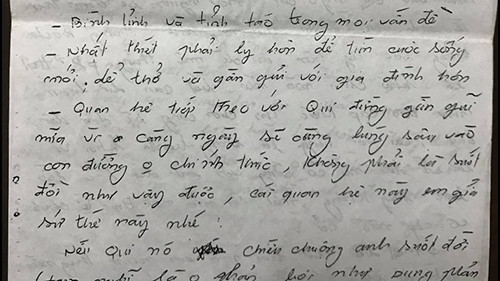 - Bình tĩnh và tỉnh táo trong mọi vấn đề
- Nhất thiết phải ly hôn để tìm cuộc sống
mới, để thở và gần gũi với gia đình hơn
- Quan hệ tiếp theo với Qui đừng gần gũi
nữa vì càng ngày sẽ càng lung sâu vào
con đường o chính thức, không phải là suốt
đời như vậy được, cái quan hệ này em giả
sử thế này nhé:
Nếu Qui nó chiều chuộng anh suốt đời